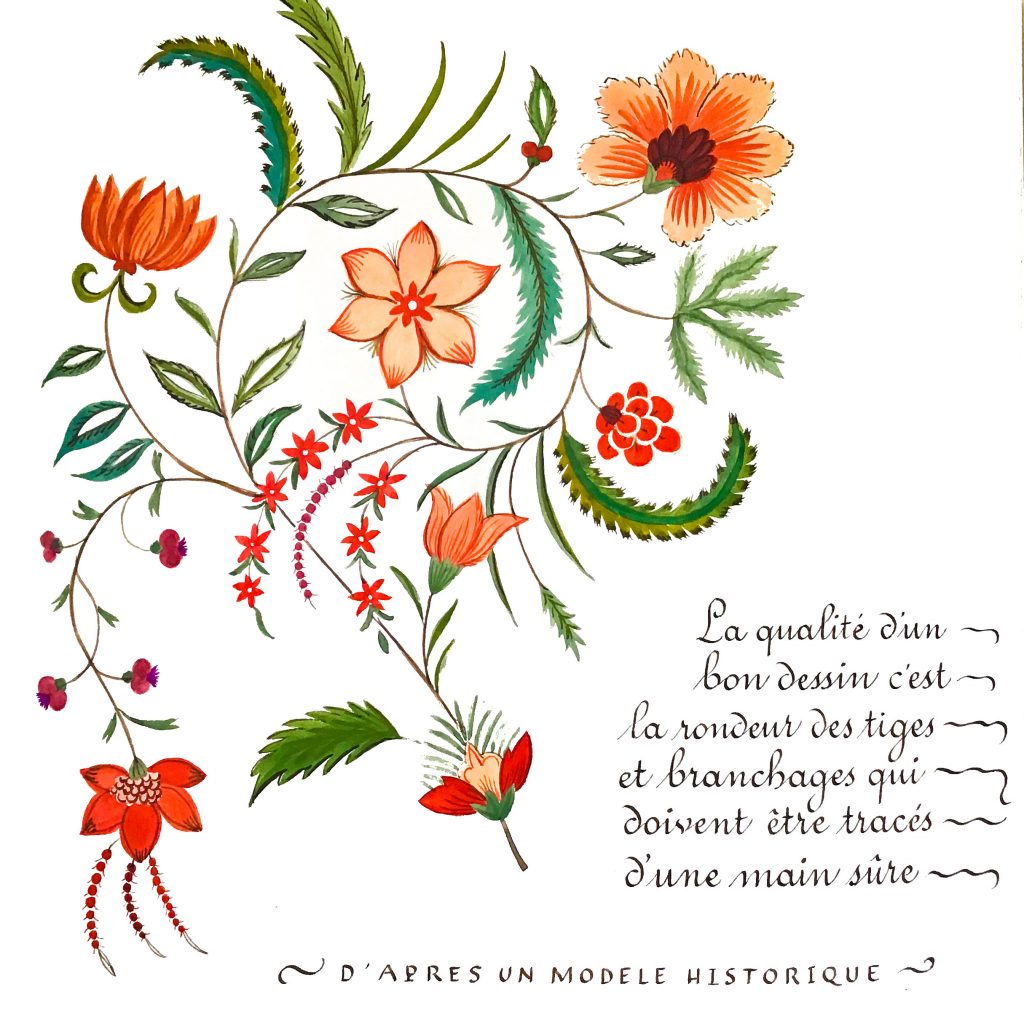 La qualité d'un
bon dessin c'est
la rondeur des tiges
et branchages qui
doivent être tracés
d'une main sûre
D'APRES UN MODELE HISTORIQUE